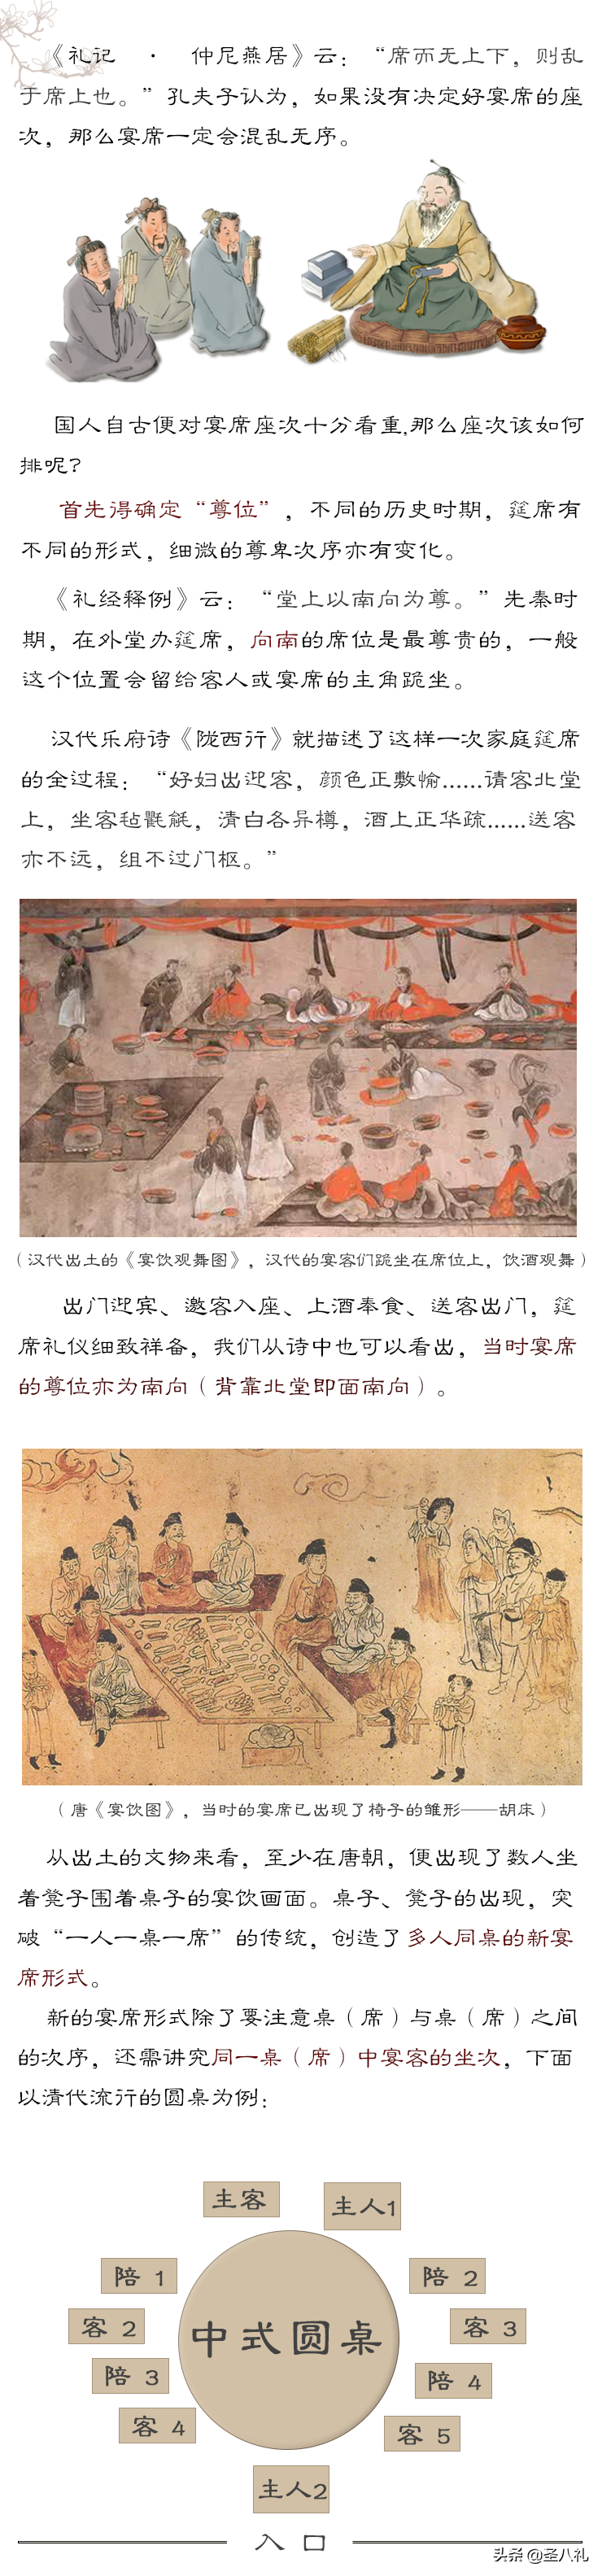 《礼记 · 仲尼燕居》云：“席而无上下，则乱
于席上也。”孔夫子认为，如果没有决定好宴席的座
次，那么宴席一定会混乱无序。
国人自古便对宴席座次十分看重,那么座次该如何
排呢?
首先得确定“尊位”，不同的历史时期，筵席有
不同的形式，细微的尊卑次序亦有变化。
《礼经释例》云：“堂上以南向为尊。”先秦时
期，在外堂办筵席，向南的席位是最尊贵的，一般
这个位置会留给客人或宴席的主角跪坐。
汉代乐府诗《陇西行》就描述了这样一次家庭筵席
的全过程：“好妇出迎客，颜色正敷愉......请客北堂
上，坐客毡氍毹，清白各异樽，酒上正华疏......送客
亦不远，组不过门枢。”
（汉代出土的《宴饮观舞图》，汉代的宴客们跪坐在席位上，饮酒观舞）
出门迎宾、邀客入座、上酒奉食、送客出门，筵
席礼仪细致祥备，我们从诗中也可以看出，当时宴席
的尊位亦为南向（背靠北堂即面南向）。
（唐《宴饮图》，当时的宴席已出现了椅子的雏形——胡床）
从出土的文物来看，至少在唐朝，便出现了数人坐
着凳子围着桌子的宴饮画面。桌子、凳子的出现，突
破“一人一桌一席”的传统，创造了多人同桌的新宴
席形式。
新的宴席形式除了要注意桌（席）与桌（席）之间
的次序，还需讲究同一桌（席）中宴客的坐次，下面
以清代流行的圆桌为例：
主客 主人1
陪 1 陪 2
客 2 客 3
中式圆桌
陪 3 陪 4
客 4 客 5
主人2
入 口
头条 @圣八礼